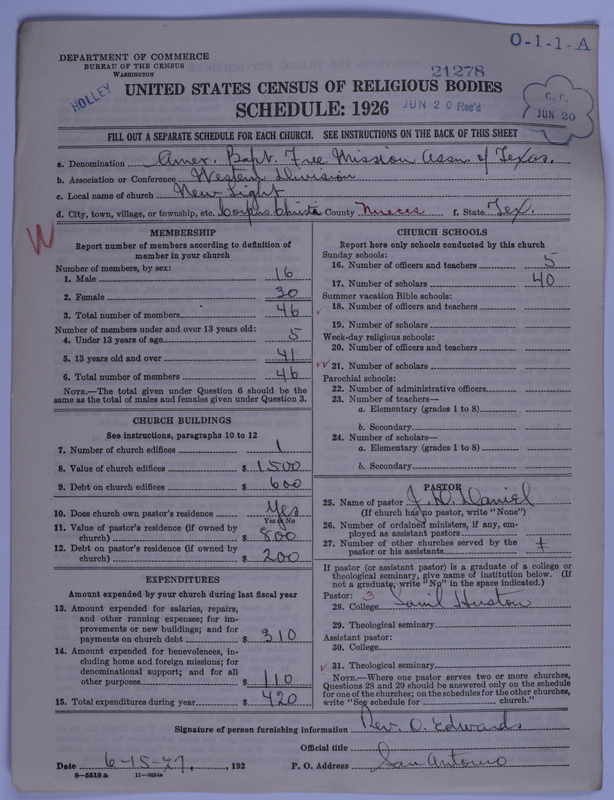 O-1-1-A
DEPARTMENT OF COMMERCE
BUREAU OF THE CENSUS
WASHINGTON
HOLLEY
21278
UNITED STATES CENSUS OF RELIGIOUS BODIES
SCHEDULE: 1926
JUN 20 Rec'd
C. C.
JUN 20
FILL OUT A SEPARATE SCHEDULE FOR EACH CHURCH. SEE INSTRUCTIONS ON THE BACK OF THIS SHEET
a. Denomination Amer. Bapt. Free Mission Assn. of Texas.
b. Association or Conference Western Division
c. Local name of church New Light
d. City, town, village, or township, etc. Corpus Christi County Nueces f. State Tex.
W
MEMBERSHIP
Report number of members according to definition of
member in your church
Number of members, by sex:
1. Male 16
2. Female 30
3. Total number of members 46
Number of members under and over 13 years old:
4. Under 13 years of age 5
5. 13 years old and over 41
6. Total number of members 46
NOTE.—The total given under Question 6 should be the
same as the total of males and females given under Question 3.
CHURCH BUILDINGS
See instructions, paragraphs 10 to 12
7. Number of church edifices 1
8. Value of church edifices $ 1500
9. Debt on church edifices $ 600
10. Does church own pastor's residence Yes
Yes or No
11. Value of pastor's residence (if owned by
church) $ 800
12. Debt on pastor's residence (if owned by
church) $ 200
EXPENDITURES
Amount expended by your church during last fiscal year
13. Amount expended for salaries, repairs,
and other running expenses; for im-
provements or new buildings; and for
payments on church debt $ 310
14. Amount expended for benevolences, in-
cluding home and foreign missions; for
denominational support; and for all
other purposes $ 110
15. Total expenditures during year $ 420
CHURCH SCHOOLS
Report here only schools conducted by this church
Sunday schools:
16. Number of officers and teachers 5
17. Number of scholars 40
Summer vacation Bible schools:
18. Number of officers and teachers
19. Number of scholars
Week-day religious schools:
20. Number of officers and teachers
21. Number of scholars
Parochial schools:
22. Number of administrative officers
23. Number of teachers—
a. Elementary (grades 1 to 8)
b. Secondary
24. Number of scholars—
a. Elementary (grades 1 to 8)
b. Secondary
PASTOR
25. Name of pastor J. D. Daniel
(If church has no pastor, write "None")
26. Number of ordained ministers, if any, em-
ployed as assistant pastors
27. Number of other churches served by the
pastor or his assistants
If pastor (or assistant pastor) is a graduate of a college or
theological seminary, give name of institution below. (If
not a graduate, write "No" in the space indicated.)
Pastor: 3
28. College Saml Huston
29. Theological seminary
Assistant pastor:
30. College
31. Theological seminary
NOTE.—Where one pastor serves two or more churches,
Questions 28 and 29 should be answered only on the schedule
for one of the churches; on the schedules for the other churches,
write "See schedule for church."
Signature of person furnishing information Rev. O. Edwards
Official title
Date 6-15-27, 192 P. O. Address San Antonio
8-5518 a